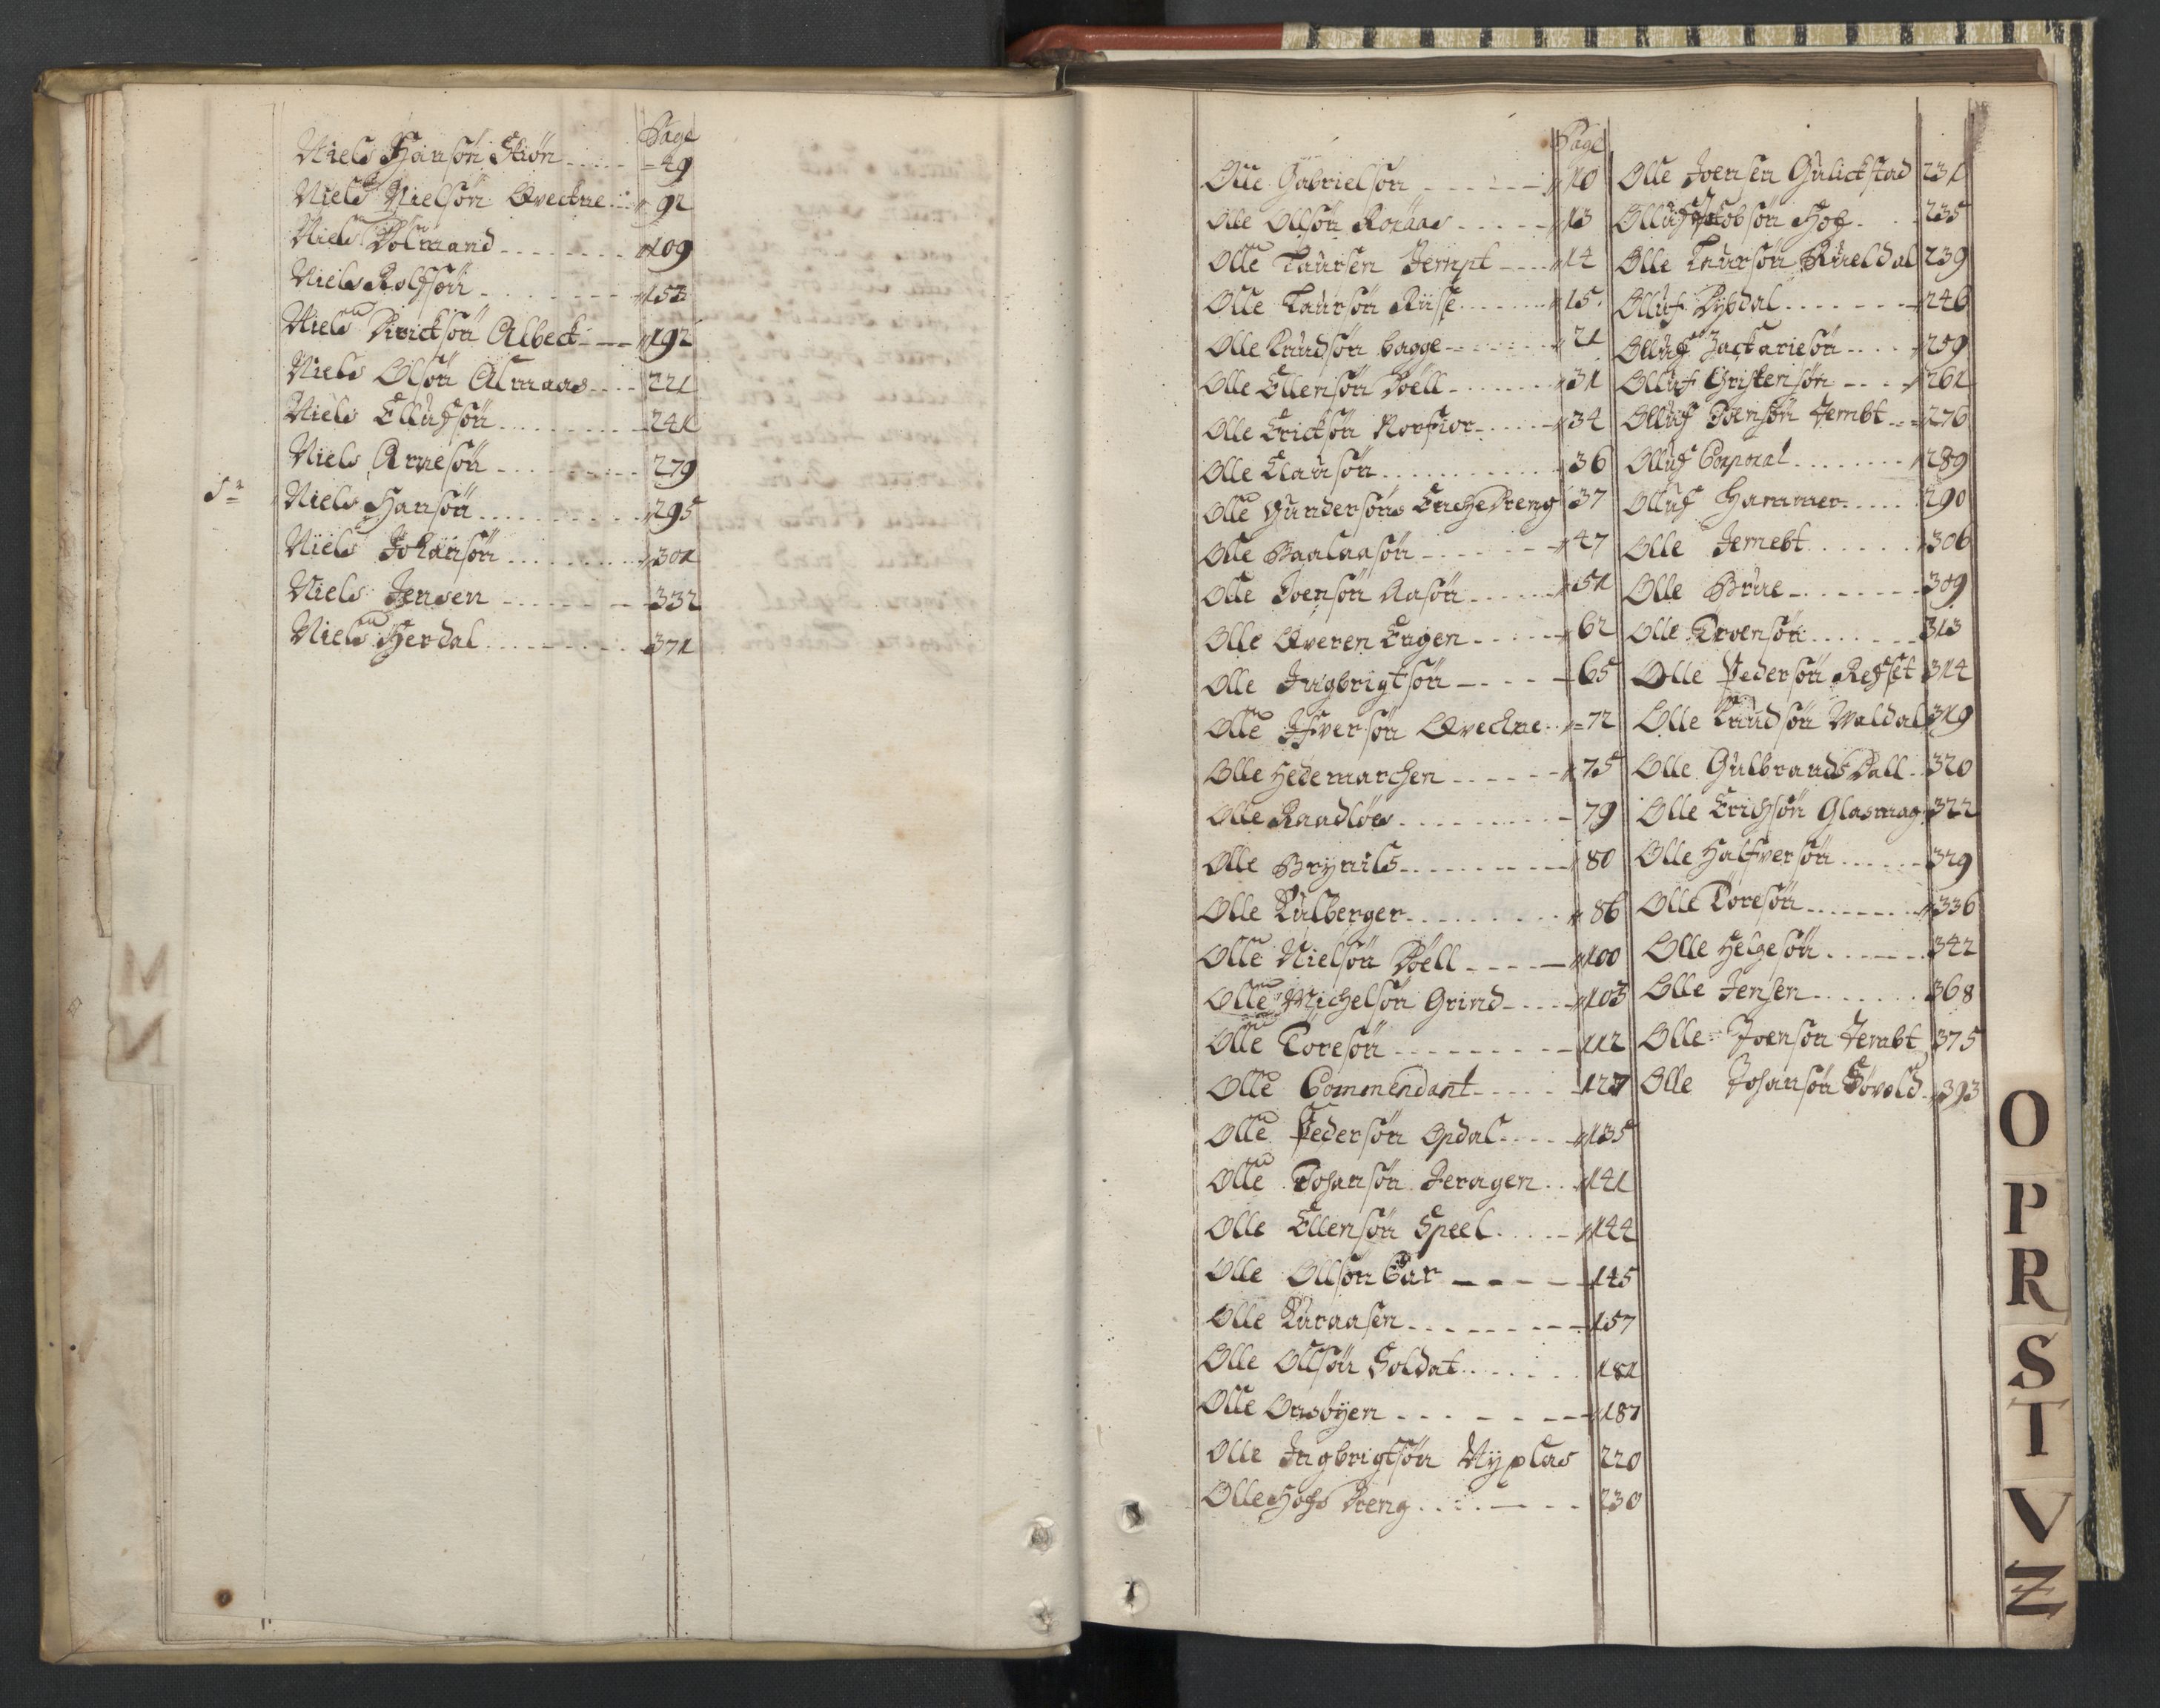 Page
Niels Hansön Skiön 49
Niels Nielsön Qveckne 92
Niels Dolmand 109
Niels Rolfsön 153
Niels Diricksön Albeck 192
Niels Olsön Almaas 221
Niels Ellufsön 241
Niels Arnesön 279
Niels Hansön 295
Niels Johansön 301
Niels Jensen 332
Niels Herdal 371
M
N
Page
Olle Gabrielsön 10
Olle Ollsön Roraas 13
Olle Laursen Jempt 14
Olle Laursön Riise 15
Olle Knudsön bagge 21
Olle Ellensön Döell 31
Olle Ericksön Norfior 34
Olle Clausön 36
Olle Gundersöns Enche Dreng 37
Olle Baalaasön 47
Olle Joensön Aasön 51
Olle Qveren Engen 62
Olle Ingbrigtsön 65
Olle Ifversön Qveckne 72
Olle Hedemarchen 75
Olle Raadlöes 79
Olle Brynils 80
Olle Kulberger 86
Olle Nielsön Döell 100
Olle Michelsön Grind 103
Olle Töresön 112
Olle Commendant 127
Olle Pedersön Opdal 135
Olle Johansön Jeragen 141
Olle Ellensön Speel 144
Olle Ollsön 145
Olle Kuraasen 157
Olle Ollsön Soldat 181
Olle Onsöyen 187
Olle Ingbrigtsön Nyplas 220
Olle Hofs Dreng 230
Olle Joensen Gulickstad 231
Olluf Jacobsön Hof 235
Olle Laursön Rueldal 239
Olluf Dybdal 246
Olluf Zackariesön 259
Olluf Christensön 261
Olluf Joensön Jembt 276
Olluf Corporal 289
Olluf Hammer 290
Olle Jemebt 306
Olle Brue 309
Olle Troensön 313
Olle Pedersön Refset 314
Olle Knudsön Waldal 319
Olle Gulbrands Dall 320
Olle Erichsön Glasmag 322
Olle Halfversön 329
Olle Toresön 336
Olle Helgesön 342
Olle Jensen 368
Olle Joensön Jembt 375
Olle Johansön 393
O
P
R
S
T
V
Z